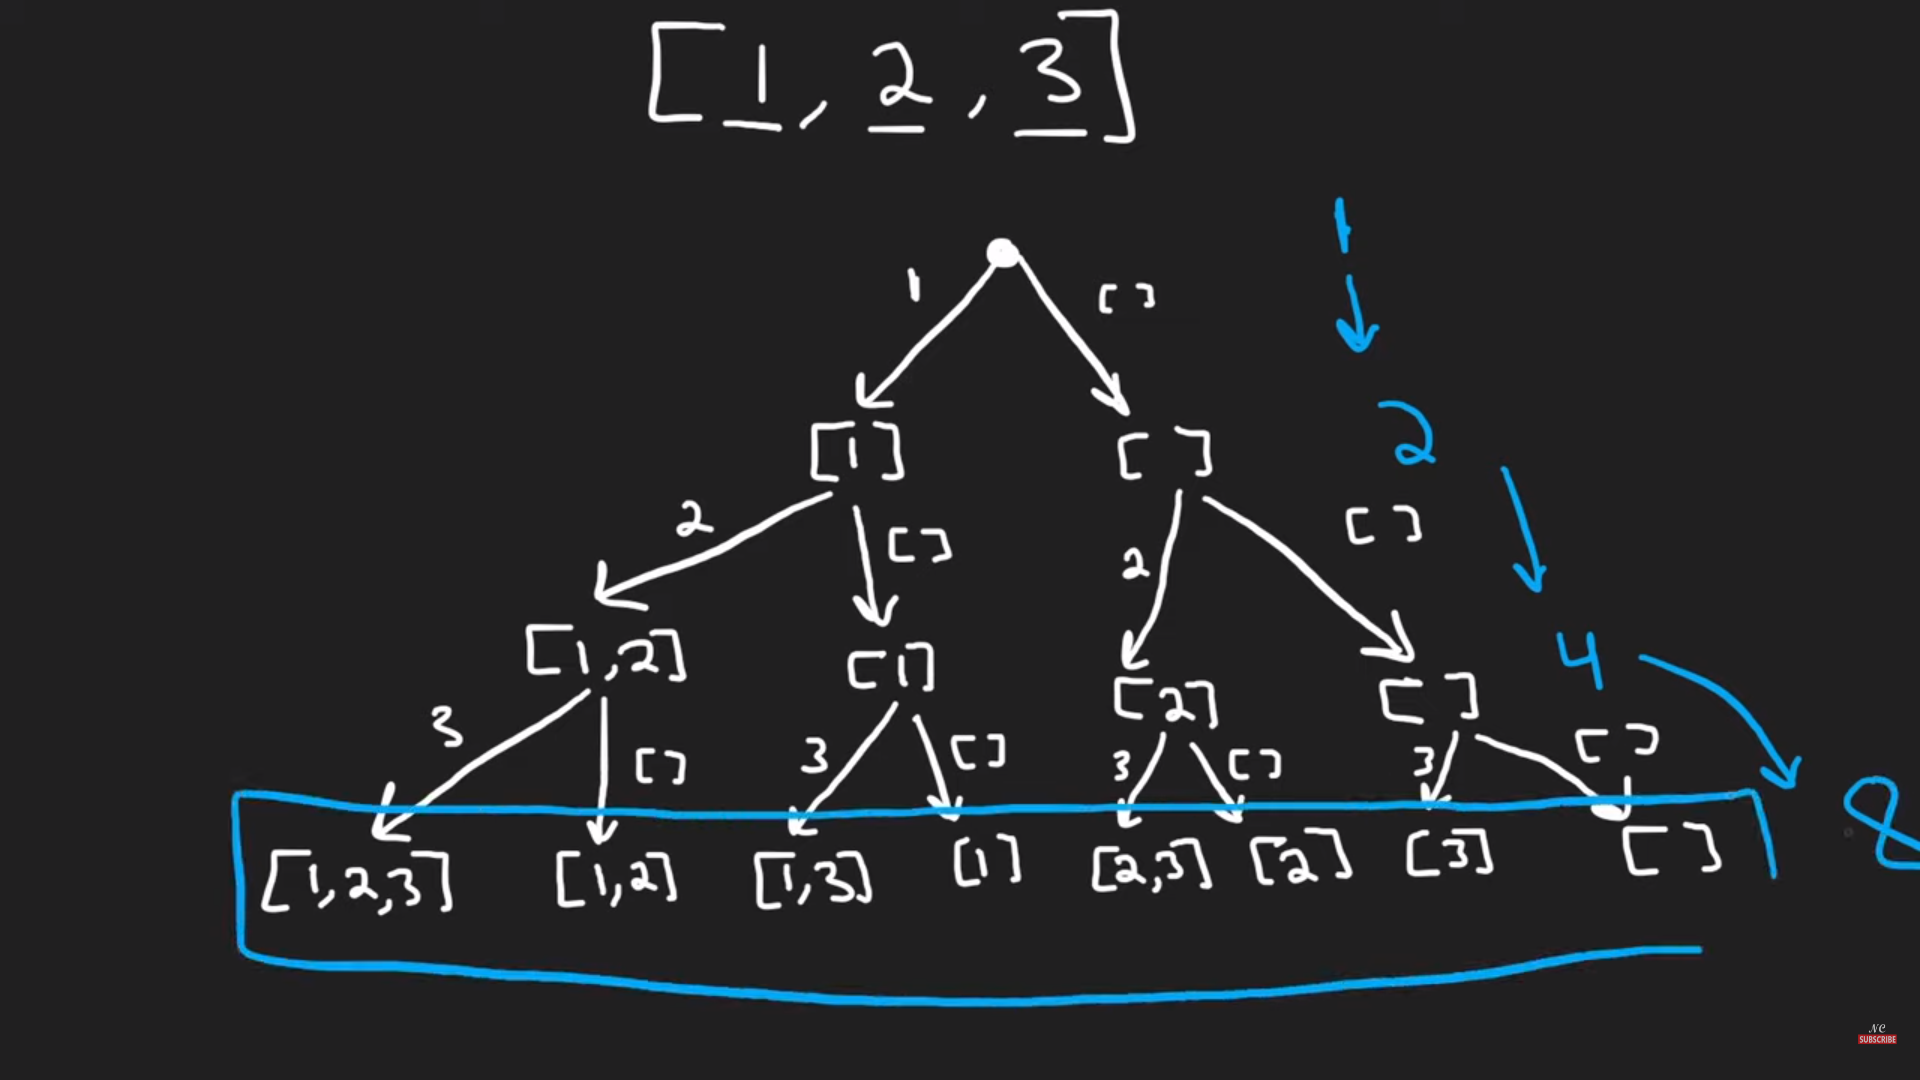 [1, 2, 3]
1
1 []
[1] [ ] 2
2 [] 2 []
[1,2] [1] [2] [ ] 4
3 [] 3 [] 3 [] 3 []
[1,2,3] [1,2] [1,3] [1] [2,3] [2] [3] [ ] 8
NC
SUBSCRIBE